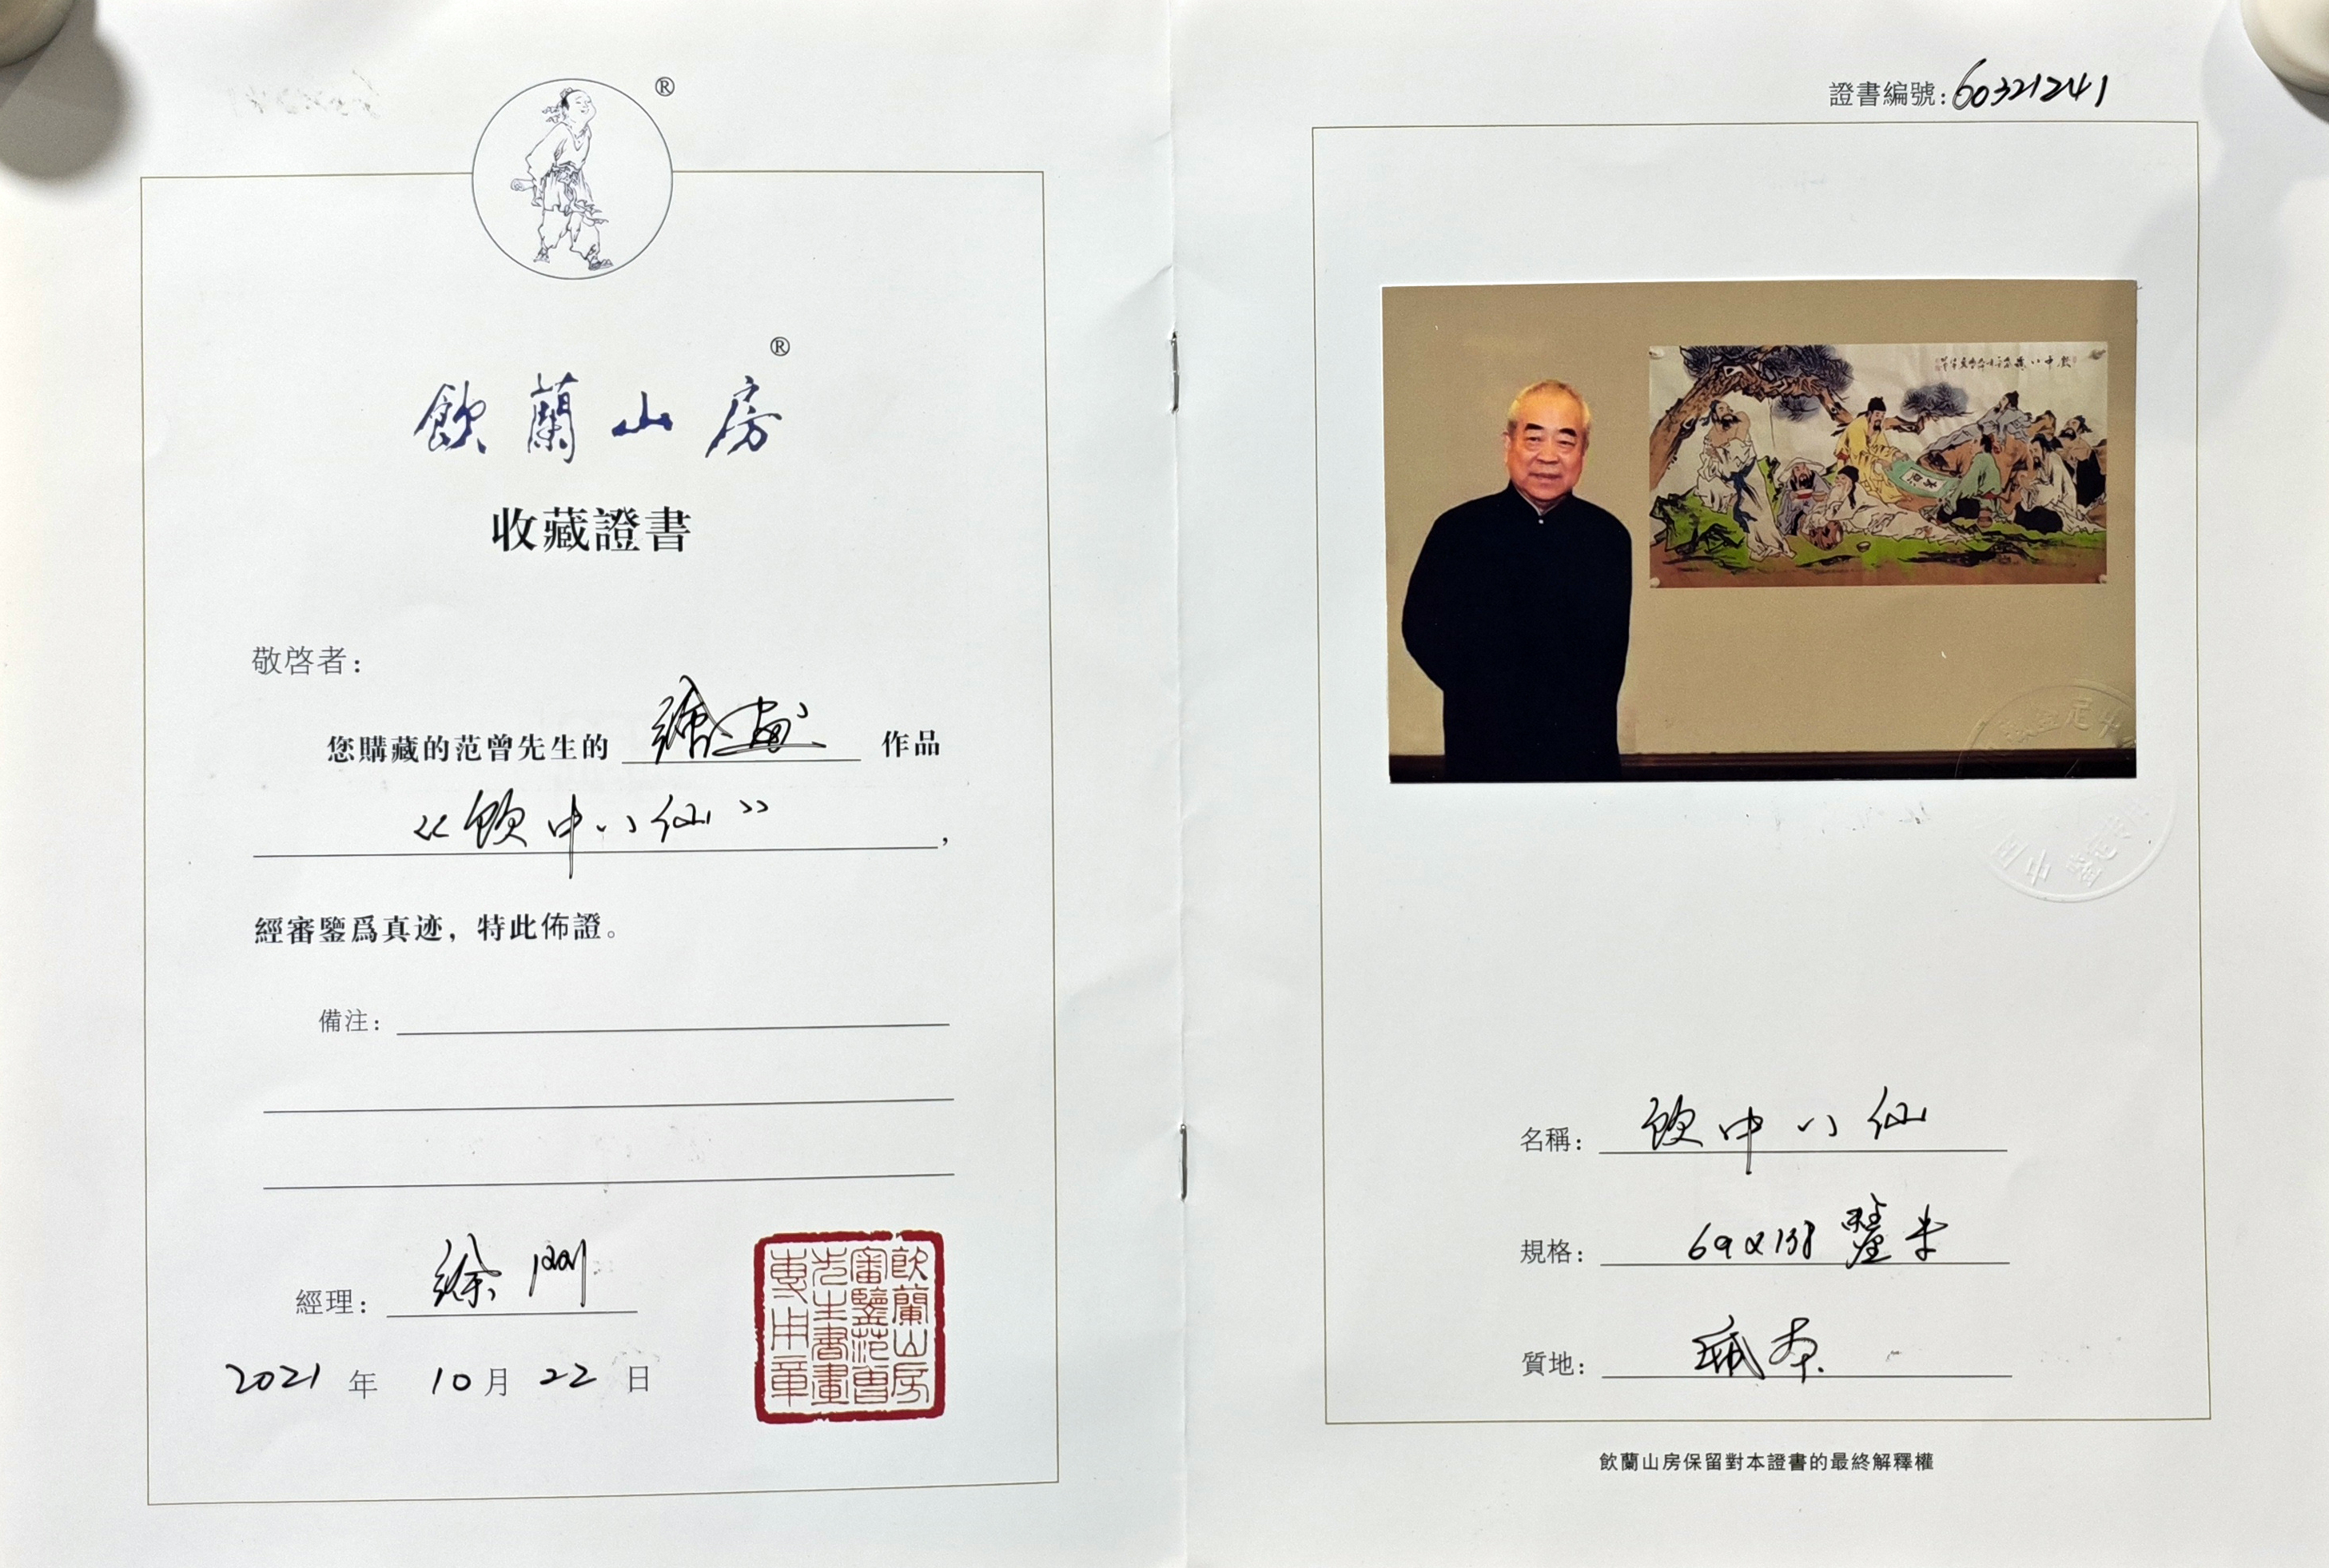 ®
®
飲蘭山房
收藏證書
敬啓者：
您購藏的范曾先生的 繪畫 作品
《飲中八仙》，
經審鑒爲真迹，特此佈證。
備注：
經理：徐刚
2021年10月22日
飲蘭山房
審鑒范曾
先生書畫
專用章
證書編號：60321241
飲中八仙
名稱：飲中八仙
規格：69×138 釐米
質地：紙本
飲蘭山房保留對本證書的最終解釋權